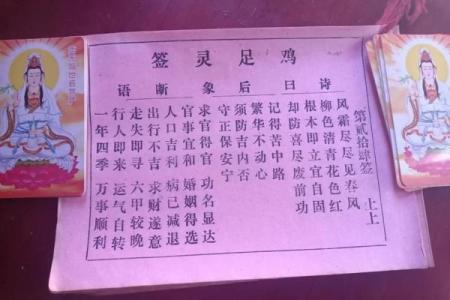 鸡足灵签
诗曰后象断语
第贰拾肆签 上上
风霜尽尽见春风
柳色清青花色红
根本即立宜自固
却防喜尽废前功
记得苦中路
繁华不动心
须防吉内否
守正保安宁
求官得官 功名显达
官事宜和 婚姻得选
人口吉利 病已减退
出行不吉 求财遂意
走失即寻 六甲较晚
行人即来 运气自转
一年四季 万事顺利